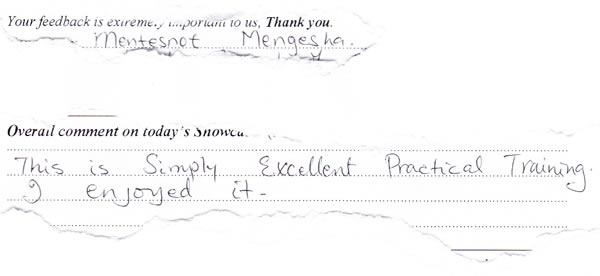 Your feedback is extremely important to us, Thank you.
Mentesnot Mengesha.
Overall comment on today's Showca
This is Simply Excellent Practical Training.
I enjoyed it.